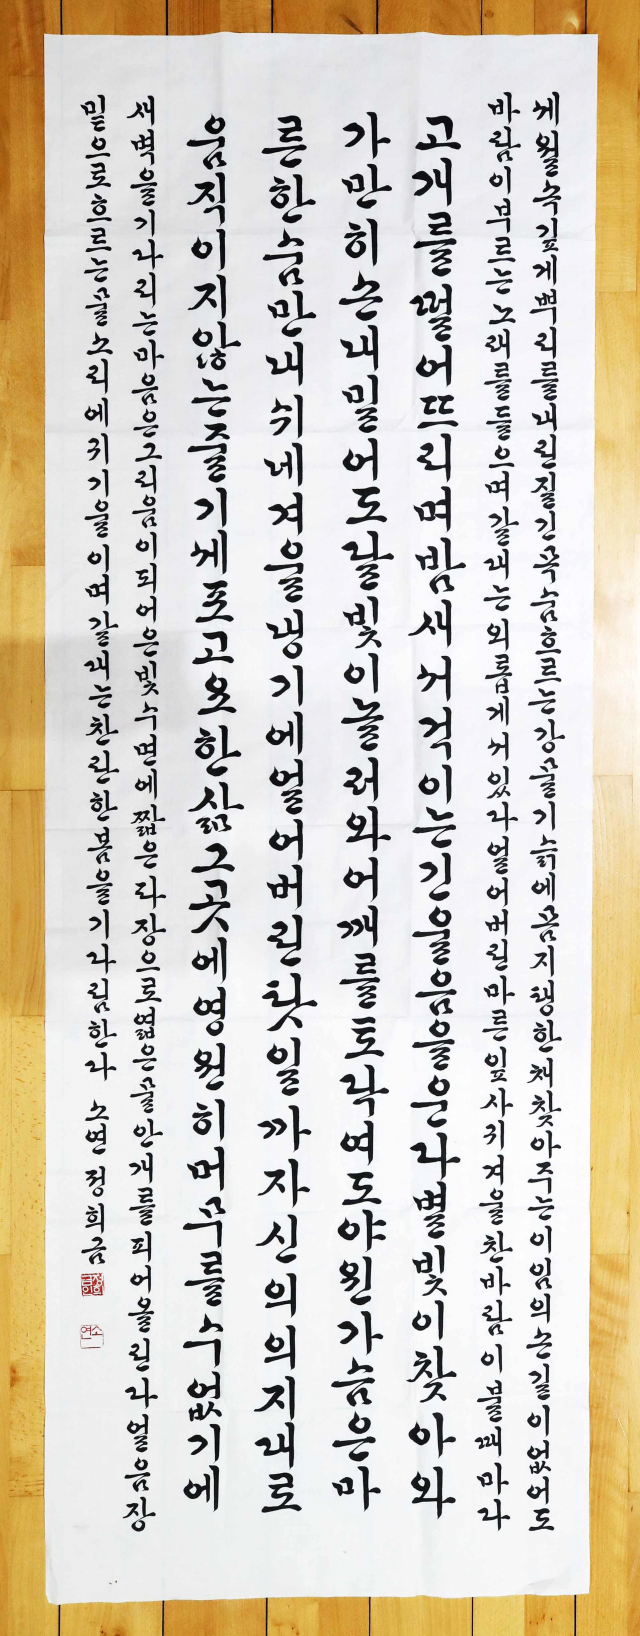 세월속깊게뿌리를내린질긴목숨흐르는강물기슭에몸지탱한채찾아주는이임의손길이없어도
바람이부르는노래를들으며갈대는외롭게서있다얼어버린마른잎사귀겨울찬바람이불때마다
고개를떨어뜨리며밤새서걱이는긴울음을운다별빛이찾아와
가만히손내밀어도달빛이놀러와어깨를토닥여도야윈가슴은마
른한숨만내쉬네겨울냉기에얼어버린탓일까자신의의지대로
움직이지않는줄기세포고요한삶그곳에영원히머무를수없기에
새벽을기다리는마음은그리움이되어은빛수면에짧은파장으로엷은물안개를피어올린다얼음장
밑으로흐르는물소리에귀기울이며갈대는찬란한봄을기다림한다 소연 정희금
정희금
소연